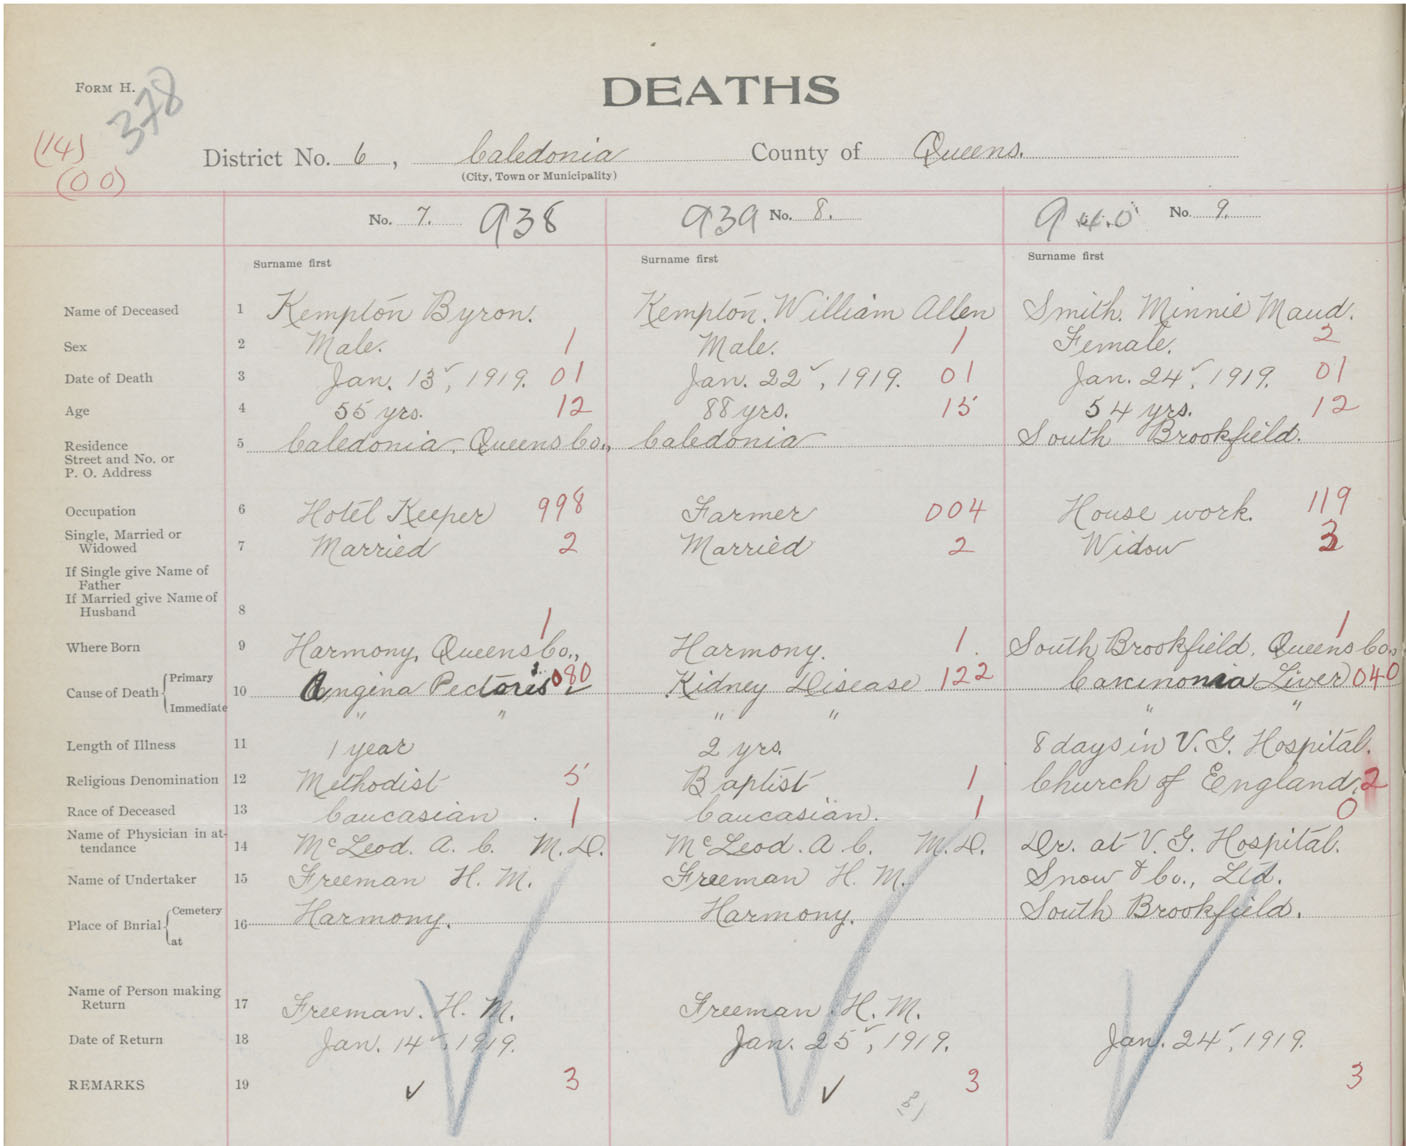 FORM H.
378
DEATHS
(14)
(00)
District No. 6, Caledonia County of Queens.
(City, Town or Municipality)
No. 7. 938 939 No. 8. 940 No. 9.
Surname first Surname first Surname first
Name of Deceased 1 Kempton Byron. Kempton. William Allen Smith. Minnie Maud.
Sex 2 Male. 1 Male. 1 Female. 2
Date of Death 3 Jan. 13, 1919. 01 Jan. 22, 1919. 01 Jan. 24, 1919. 01
Age 4 55 yrs. 12 88 yrs. 15 54 yrs. 12
Residence 5 Caledonia, Queens Co., Caledonia South Brookfield.
Street and No. or
P. O. Address
Occupation 6 Hotel Keeper 998 Farmer 004 House work. 119
Single, Married or
Widowed 7 Married 2 Married 2 Widow 3
If Single give Name of
Father
If Married give Name of
Husband 8
Where Born 9 Harmony, Queens Co., 1 Harmony. 1. South Brookfield, Queens Co., 1
Cause of Death { Primary 10 Angina Pectoris 080 Kidney Disease 122 Carcinonia Liver 040
Immediate " " " " " "
Length of Illness 11 1 year 2 yrs. 8 days in V. G. Hospital.
Religious Denomination 12 Methodist 5 Baptist 1 Church of England. 2
Race of Deceased 13 Caucasian. 1 Caucasian. 1 0
Name of Physician in at-
tendance 14 McLeod. A. C. M.D. McLeod. A C. M.D. Dr. at V. G. Hospital.
Name of Undertaker 15 Freeman H. M. Freeman H. M. Snow & Co., Ltd.
Place of Burial { Cemetery 16 Harmony. Harmony. South Brookfield.
at
Name of Person making
Return 17 Freeman. H. M. Freeman. H. M.
Date of Return 18 Jan. 14, 1919. Jan. 25, 1919. Jan. 24, 1919.
REMARKS 19 ✓ 3 ✓ 3 3